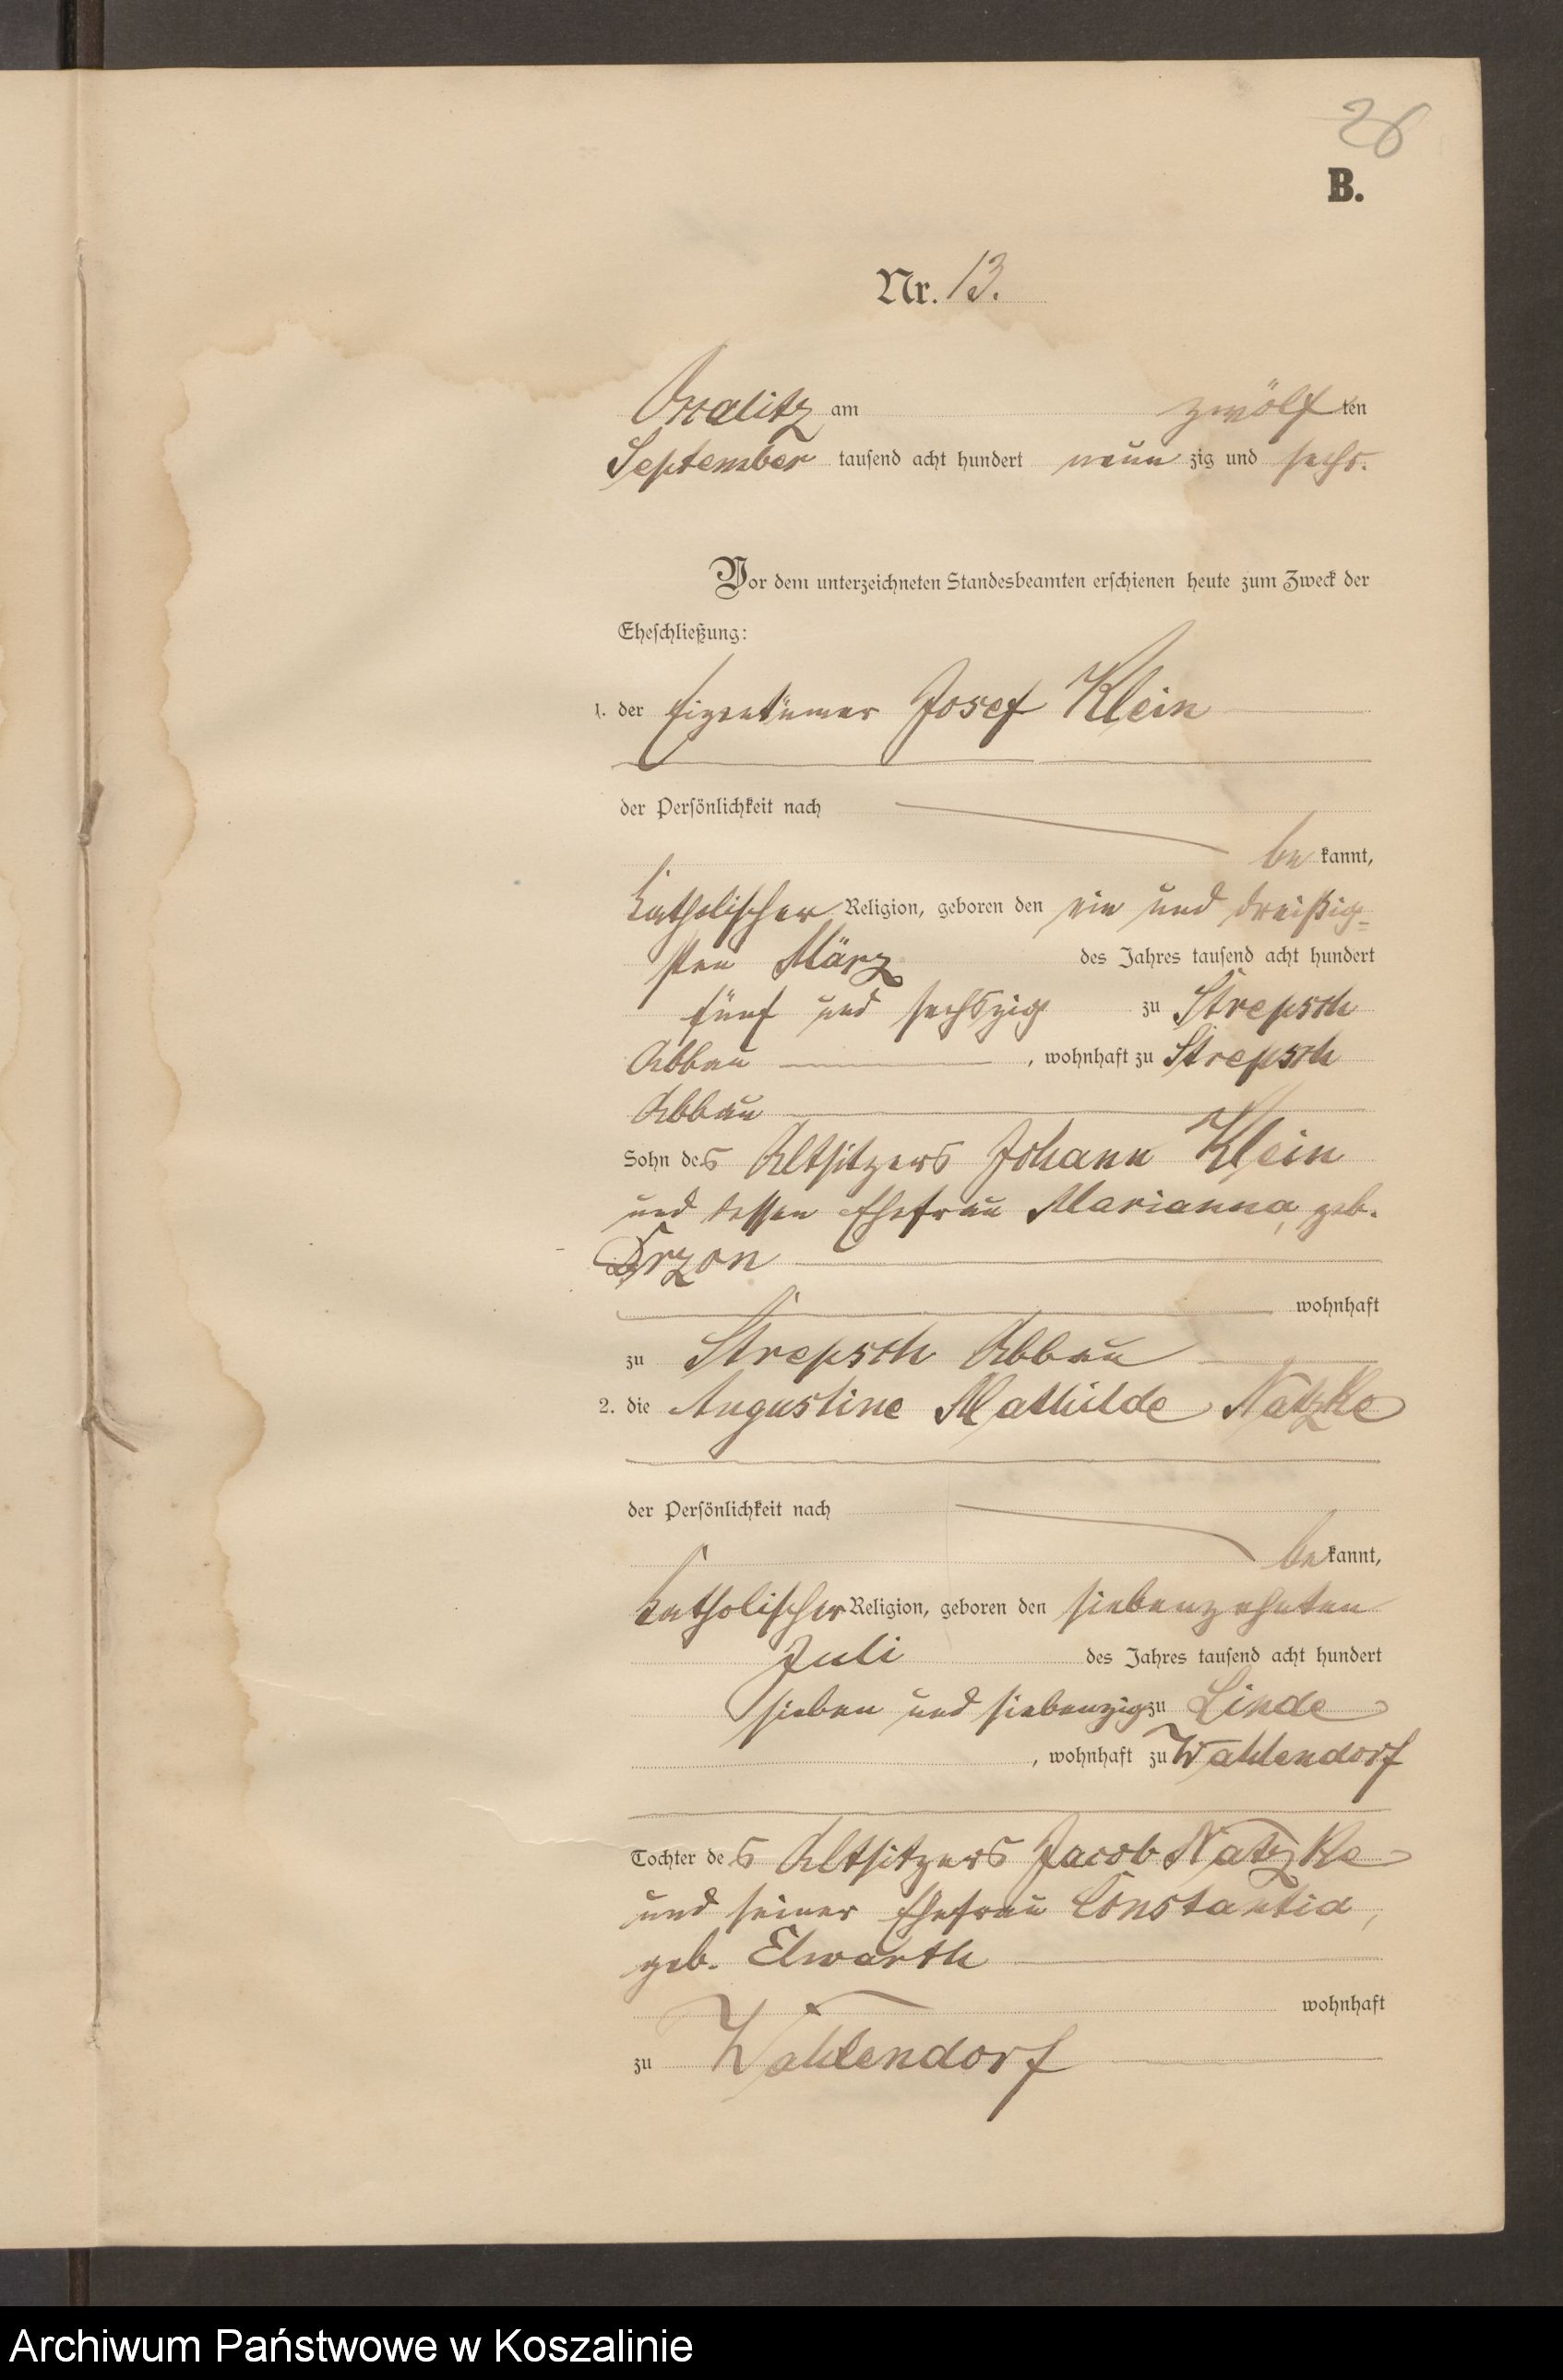 26
B.
Nr. 13.
Occalitz am zwölf ten
September tausend acht hundert neun zig und sechs.
Vor dem unterzeichneten Standesbeamten erschienen heute zum Zweck der
Eheschließung:
1. der Eigentümer Josef Klein
der Persönlichkeit nach
be kannt,
katholischer Religion, geboren den ein und dreißig=
sten März des Jahres tausend acht hundert
fünf und sechszig zu Strepsch
Abbau , wohnhaft zu Strepsch
Abbau
Sohn des Altsitzers Johann Klein
und dessen Ehefrau Marianna, geb.
wohnhaft
zu Strepsch Abbau
2. die Augustine Mathilde Natzke
der Persönlichkeit nach
be kannt,
katholischer Religion, geboren den siebenzehnten
Juli des Jahres tausend acht hundert
sieben und siebenzig zu Linde
, wohnhaft zu Wahlendorf
Tochter des Altsitzers Jacob Natzke
und seiner Ehefrau Constantia,
geb. Elwarth
wohnhaft
zu Wahlendorf
Archiwum Państwowe w Koszalinie